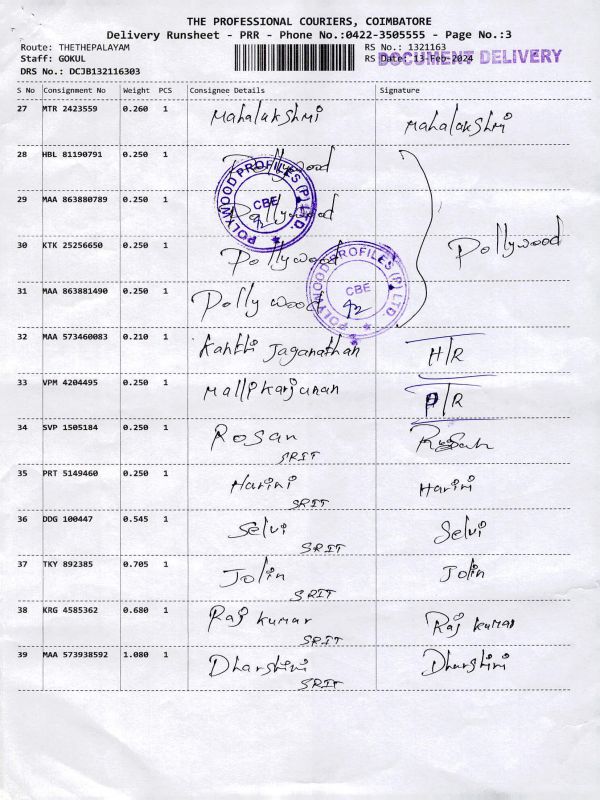 THE PROFESSIONAL COURIERS, COIMBATORE
Delivery Runsheet - PRR - Phone No.:0422-3505555 - Page No.:3
Route: THETHEPALAYAM
RS No.: 1321163
Staff: GOKUL
RS Date: 13-Feb-2024
DOCUMENT DELIVERY
DRS No.: DCJB132116303
S No Consignment No Weight PCS Consignee Details Signature
27 MTR 2423559 0.260 1 Mahalakshmi Mahalakshmi
28 HBL 81190791 0.250 1 Pollywood
29 MAA 863880789 0.250 1 Pollywood
30 KTK 25256650 0.250 1 Pollywood Pollywood
31 MAA 863881490 0.250 1 Polly wood
POLYWOOD PROFILES (P) LTD. CBE
POLYWOOD PROFILES (P) LTD. CBE
32 MAA 573460083 0.210 1 Kanthi Jaganathan H/R
33 VPM 4204495 0.250 1 Mallikarjunan P/R
34 SVP 1505184 0.250 1 Rosan Rosan
SRIT
35 PRT 5149460 0.250 1 Harini Harini
SRIT
36 DDG 100447 0.545 1 Selvi Selvi
SRIT
37 TKY 892385 0.705 1 Jolin Jolin
SRIT
38 KRG 4585362 0.680 1 Raj kumar Raj kumar
SRIT
39 MAA 573938592 1.080 1 Dharshini Dharshini
SRIT